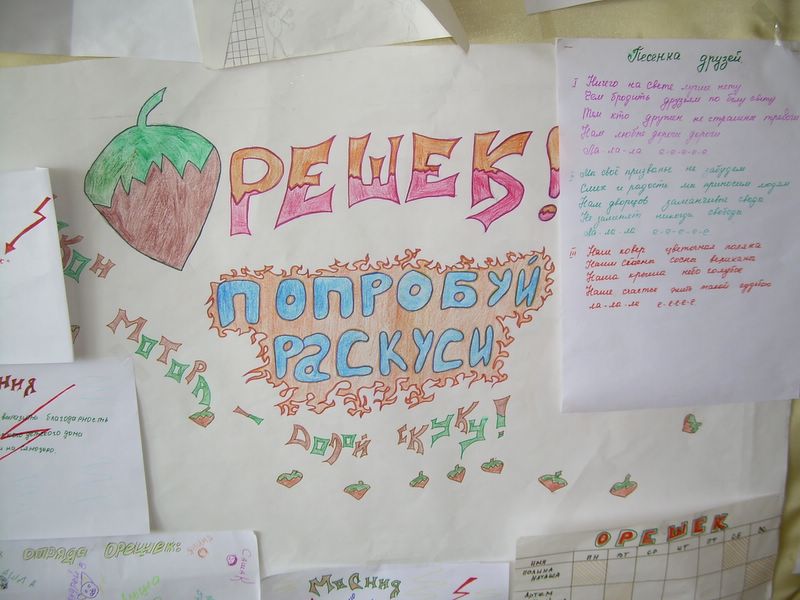 РЕШЕК!
ПОПРОБУЙ
РАСКУСИ
МОТОРА!
ДОЛОЙ СКУКУ!
Песенка друзей
I Ничего на свете лучше нету
Чем бродить друзьям по белу свету
Тем кто дружен не страшны тревоги
Нам любые дороги дороги
Ла-ла-ла е-е-е-е-е
Мы своё призванье не забудем
Смех и радость мы приносим людям
Нам дворцов заманчивые свода
Не заменят никогда свобода
Ла-ла-ла е-е-е-е-е
III Наш ковер цветочная поляна
Наши стены сосны великана
Наша крыша небо голубое
Наше счастье жить такой судьбою
ла-ла-ла е-е-е-е
благодарность
детского дома
отряда орешек:
Саша К
Миссия
ОРЕШЕК
ПН ВТ СР ЧТ ПТ СБ
ИМЯ
ПОЛИНА
НАТАША
АРТЕМ